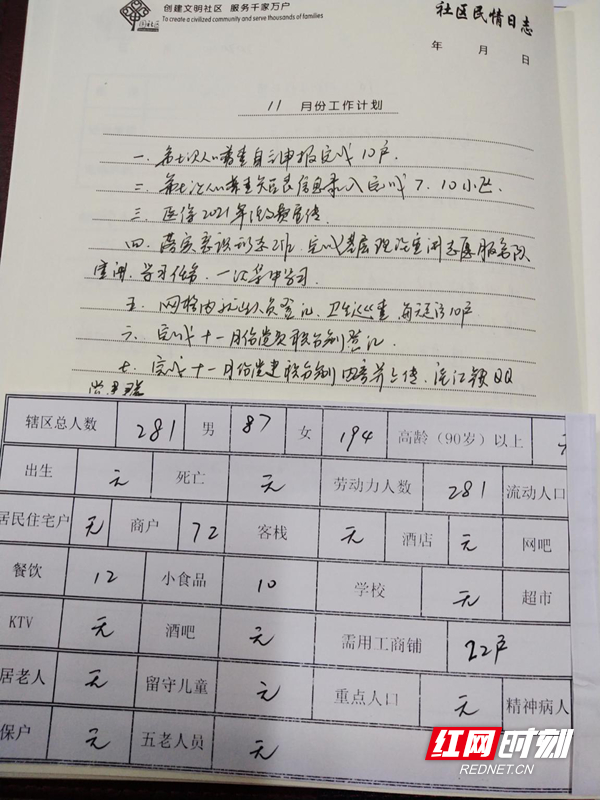 创建文明社区 服务千家万户
To create a civilized community and serve thousands of families
社区民情日志
年 月 日
11 月份工作计划
一、第七次人口普查自主申报完成10户.
二、第七次人口普查居民信息录入完成7、10小区
三、医保2021年缴费宣传
四、落实意识形态 完成基层理论宣讲志愿服务队
宣讲、学习任务、一次集中学习
五、网格内 人员登记、卫生巡查、每天走访10户
六、完成十一月份党员 登记
七、完成十一月份党建 内容并上传、 QQ
辖区总人数 281 男 87 女 194 高龄（90岁）以上 无
出生 无 死亡 无 劳动力人数 281 流动人口
居民住宅户 无 商户 72 客栈 无 酒店 无 网吧
餐饮 12 小食品 10 学校 无 超市
KTV 无 酒吧 无 需用工商铺 22户
居老人 无 留守儿童 无 重点人口 无 精神病人
保户 无 五老人员 无
红网时刻
REDNET.CN